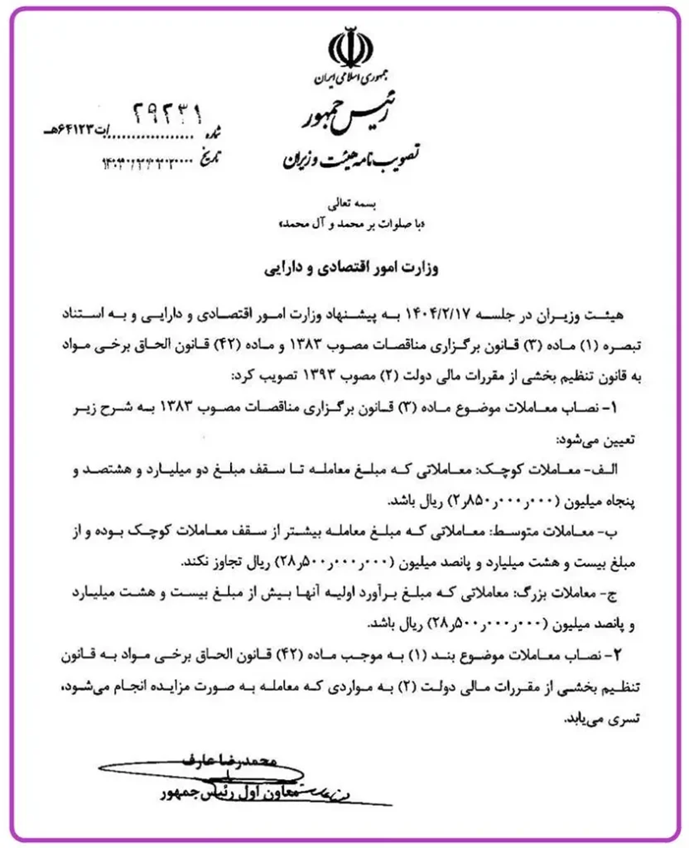 جمهوری اسلامی ایران
رئیس جمهور
تصویب نامه هیئت وزیران
شماره ۲۹۲۳۱/ت۶۴۱۲۳هـ
تاریخ
بسمه تعالی
«با صلوات بر محمد و آل محمد»
وزارت امور اقتصادی و دارایی
هیئت وزیران در جلسه ۱۴۰۴/۲/۱۷ به پیشنهاد وزارت امور اقتصادی و دارایی و به استناد
تبصره (۱) ماده (۳) قانون برگزاری مناقصات مصوب ۱۳۸۳ و ماده (۴۲) قانون الحاق برخی مواد
به قانون تنظیم بخشی از مقررات مالی دولت (۲) مصوب ۱۳۹۳ تصویب کرد:
۱- نصاب معاملات موضوع ماده (۳) قانون برگزاری مناقصات مصوب ۱۳۸۳ به شرح زیر
تعیین می‌شود:
الف- معاملات کوچک: معاملاتی که مبلغ معامله تا سقف مبلغ دو میلیارد و هشتصد و
پنجاه میلیون (۲٫۸۵۰٫۰۰۰٫۰۰۰) ریال باشد.
ب- معاملات متوسط: معاملاتی که مبلغ معامله بیشتر از سقف معاملات کوچک بوده و از
مبلغ بیست و هشت میلیارد و پانصد میلیون (۲۸٫۵۰۰٫۰۰۰٫۰۰۰) ریال تجاوز نکند.
ج- معاملات بزرگ: معاملاتی که مبلغ برآورد اولیه آنها بیش از مبلغ بیست و هشت میلیارد
و پانصد میلیون (۲۸٫۵۰۰٫۰۰۰٫۰۰۰) ریال باشد.
۲- نصاب معاملات موضوع بند (۱) به موجب ماده (۴۲) قانون الحاق برخی مواد به قانون
تنظیم بخشی از مقررات مالی دولت (۲) به مواردی که معامله به صورت مزایده انجام می‌شود،
تسری می‌یابد.
محمدرضا عارف
معاون اول رئیس جمهور